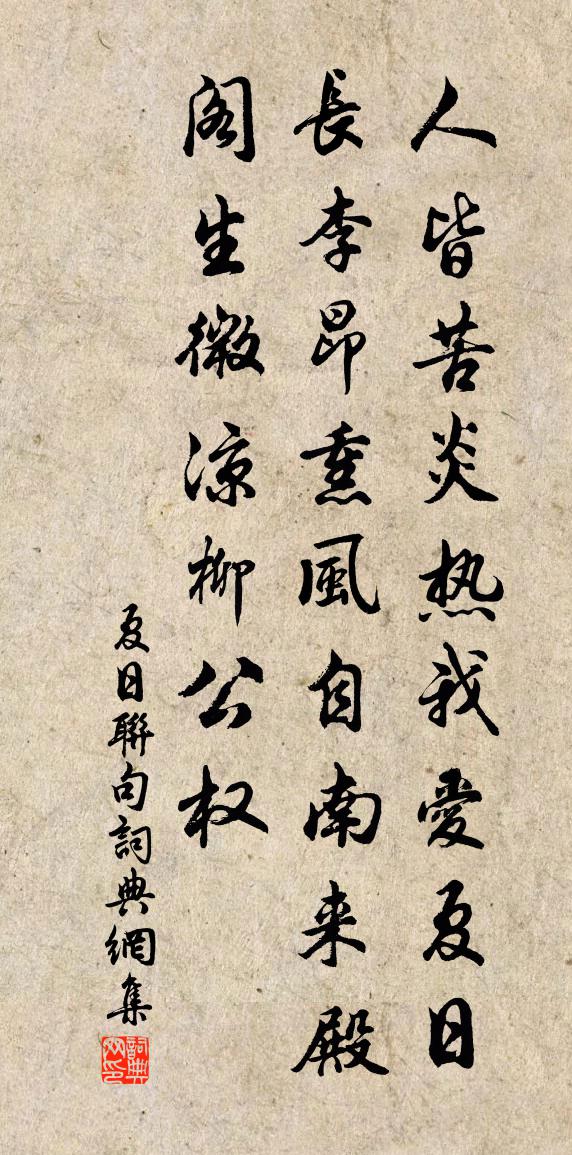 人皆苦炎热我愛夏日
長李昂熏風自南来殿
阁生微凉柳公权
夏日聯句詞典網集
詞典网印